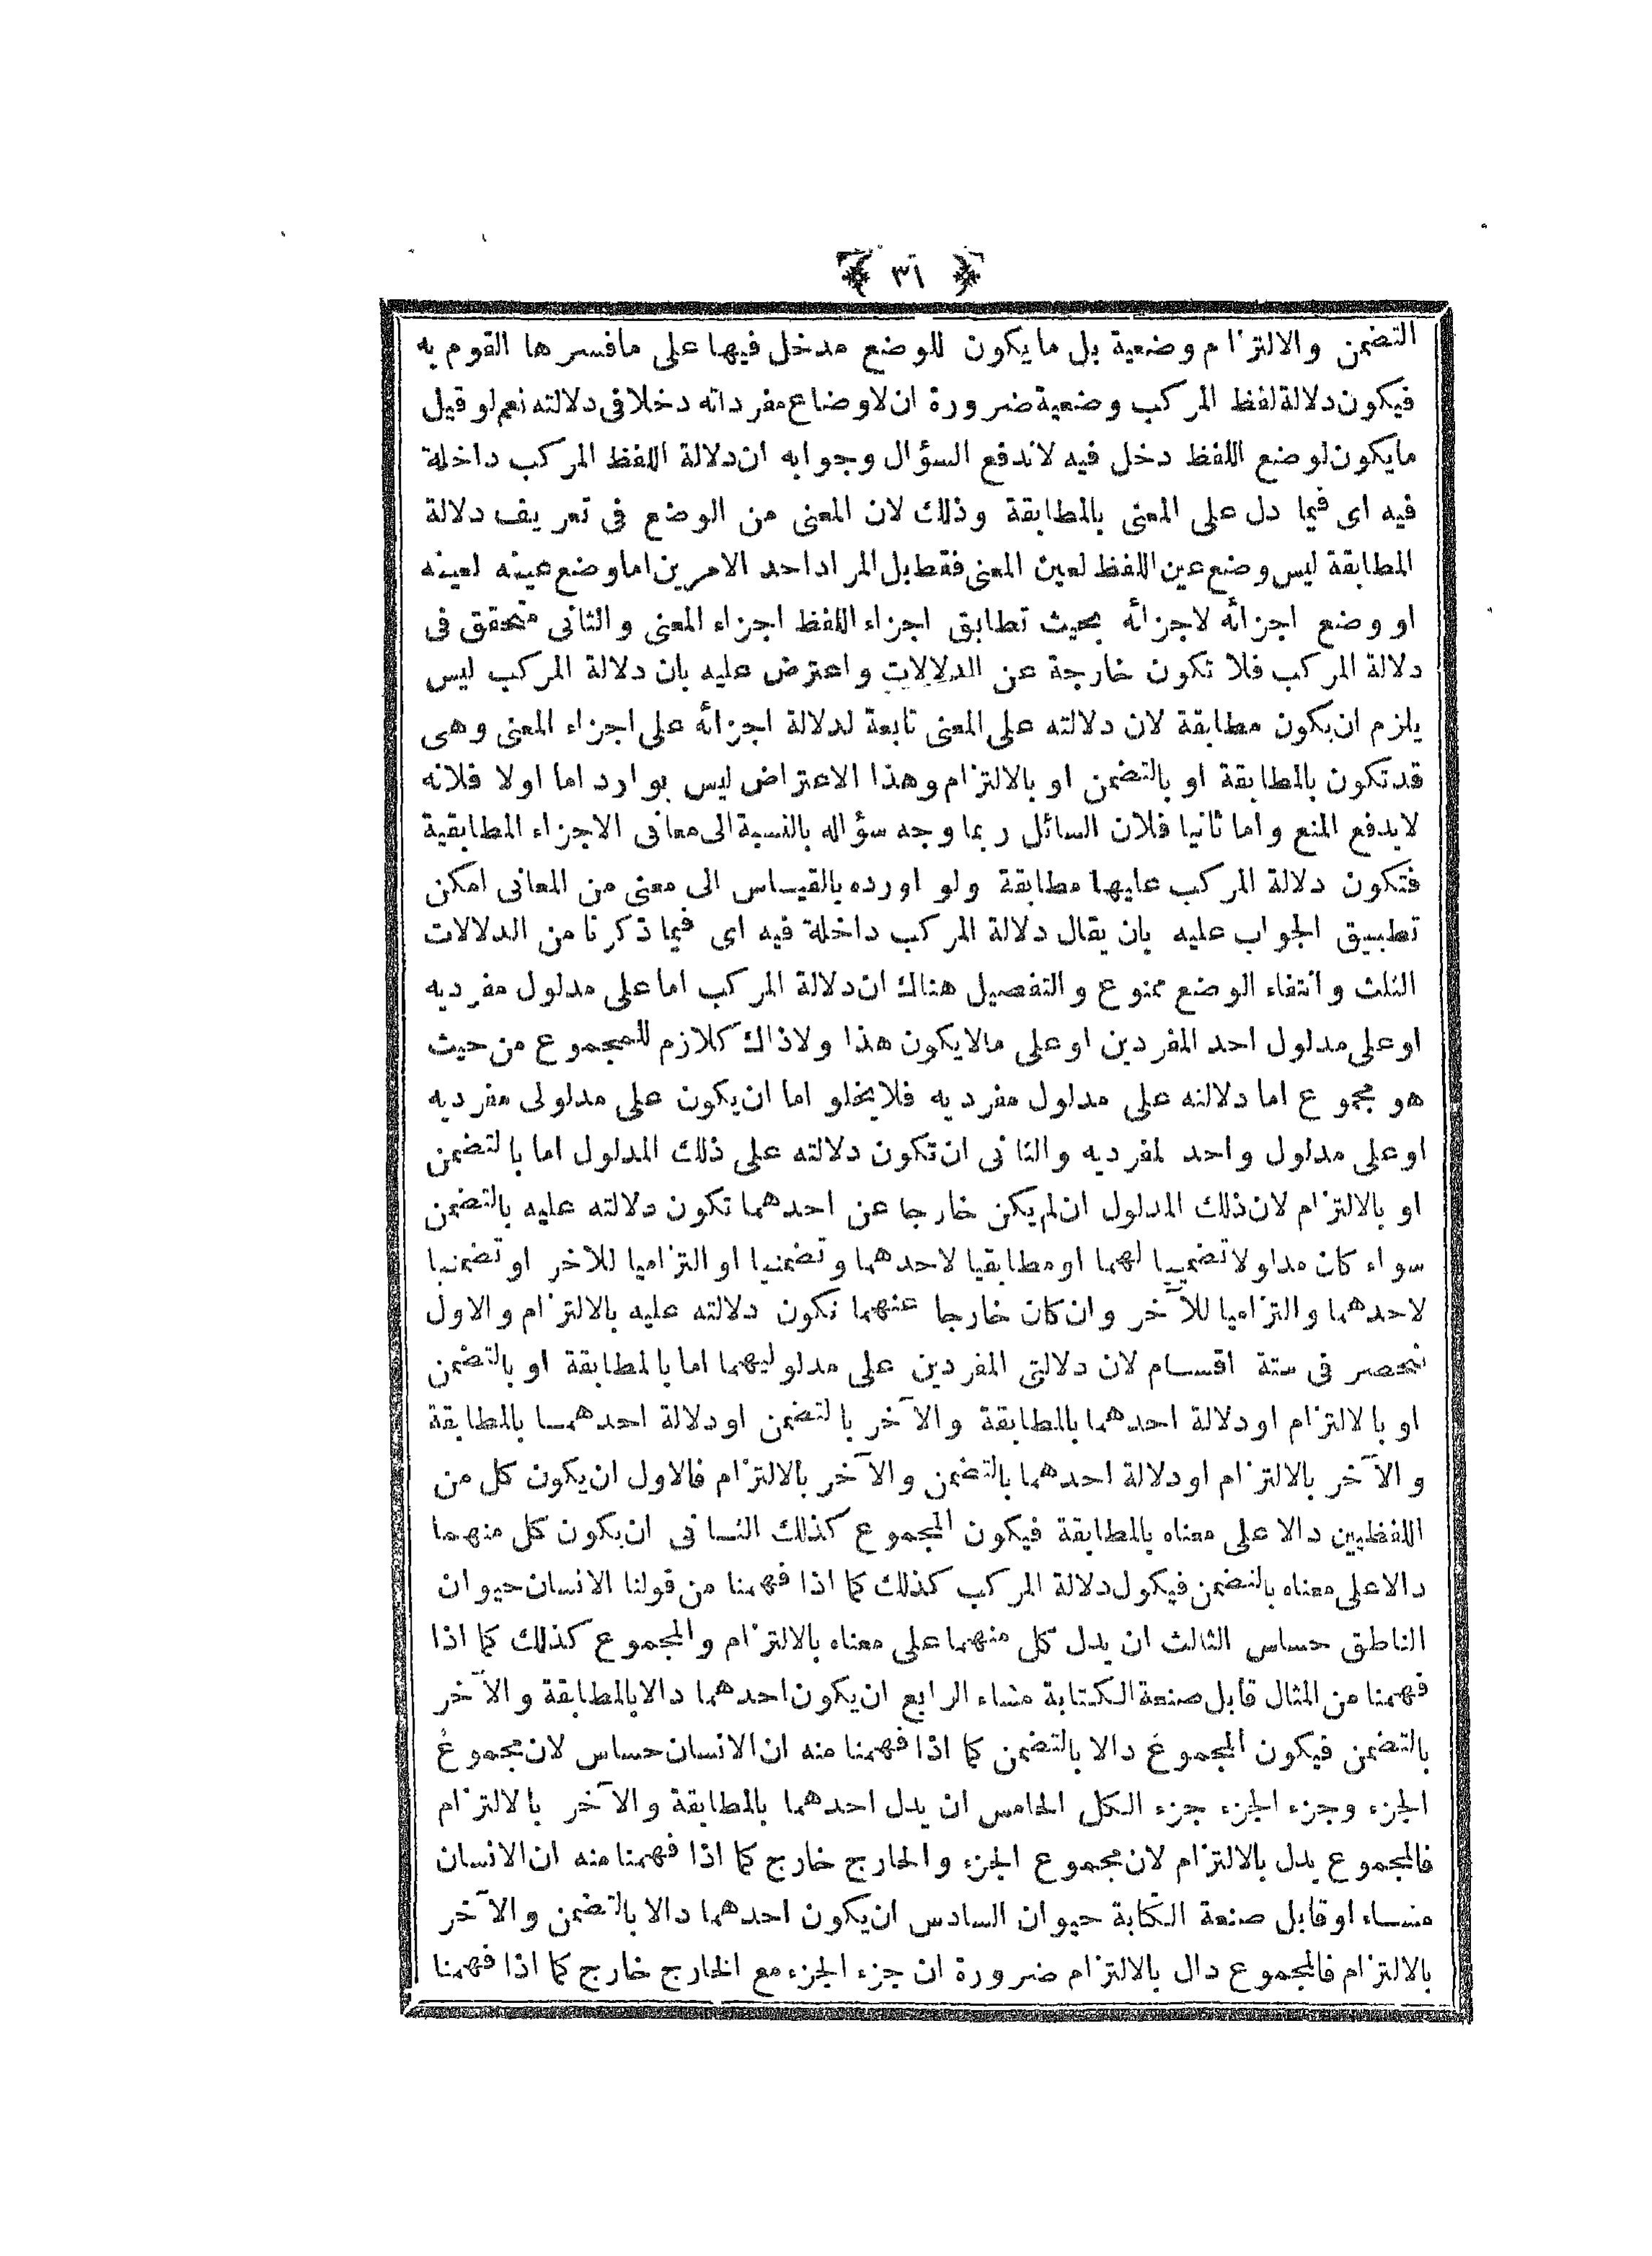 ﴿ ٣١ ﴾
التضمن والالتزام وضعية بل ما يكون للوضع مدخل فيها على مافسرها القوم به
فيكون دلالة لفظ المركب وضعية ضرورة ان لاوضاع مفرداته دخلا فى دلالته نعم لوقيل
مايكون لوضع اللفظ دخل فيه لاندفع السؤال وجوابه ان دلالة اللفظ المركب داخلة
فيه اى فيما دل على المعنى بالمطابقة وذلك لان المعنى من الوضع فى تعريف دلالة
المطابقة ليس وضع عين اللفظ لعين المعنى فقط بل المراد احد الامرين اما وضع عينه لعينه
او وضع اجزائه لاجزائه بحيث تطابق اجزاء اللفظ اجزاء المعنى والثانى متحقق فى
دلالة المركب فلا تكون خارجة عن الدلالات واعترض عليه بان دلالة المركب ليس
يلزم ان يكون مطابقة لان دلالته على المعنى تابعة لدلالة اجزائه على اجزاء المعنى وهى
قدتكون بالمطابقة او بالتضمن او بالالتزام وهذا الاعتراض ليس بوارد اما اولا فلانه
لايدفع المنع واما ثانيا فلان السائل ربما وجه سؤاله بالنسبة الى معانى الاجزاء المطابقية
فتكون دلالة المركب عليها مطابقة ولو اورده بالقياس الى معنى من المعانى امكن
تطبيق الجواب عليه بان يقال دلالة المركب داخلة فيه اى فيما ذكرنا من الدلالات
الثلث وانتفاء الوضع ممنوع والتفصيل هناك ان دلالة المركب اما على مدلول مفرديه
اوعلى مدلول احد المفردين اوعلى مالايكون هذا ولاذاك كلازم للمجموع من حيث
هو مجموع اما دلالته على مدلول مفرديه فلايخلو اما ان يكون على مدلولى مفرديه
اوعلى مدلول واحد لمفرديه والثانى ان تكون دلالته على ذلك المدلول اما بالتضمن
او بالالتزام لان ذلك المدلول ان لم يكن خارجا عن احدهما تكون دلالته عليه بالتضمن
سواء كان مدلولا تضمنيا لهما او مطابقيا لاحدهما وتضمنيا او التزاميا للاخر او تضمنيا
لاحدهما والتزاميا للآخر وان كان خارجا عنهما تكون دلالته عليه بالالتزام والاول
تنحصر فى ستة اقسام لان دلالتى المفردين على مدلوليهما اما بالمطابقة او بالتضمن
او بالالتزام او دلالة احدهما بالمطابقة والآخر بالتضمن او دلالة احدهما بالمطابقة
والآخر بالالتزام او دلالة احدهما بالتضمن والآخر بالالتزام فالاول ان يكون كل من
اللفظيين دالا على معناه بالمطابقة فيكون المجموع كذلك الثانى ان يكون كل منهما
دالا على معناه بالتضمن فيكول دلالة المركب كذلك كما اذا فهمنا من قولنا الانسان حيوان
الناطق حساس الثالث ان يدل كل منهما على معناه بالالتزام والمجموع كذلك كما اذا
فهمنا من المثال قابل صنعة الكتابة مشاء الرابع ان يكون احدهما دالا بالمطابقة والآخر
بالتضمن فيكون المجموع دالا بالتضمن كما اذا فهمنا منه ان الانسان حساس لان مجموع
الجزء وجزء الجزء جزء الكل الخامس ان يدل احدهما بالمطابقة والآخر بالالتزام
فالمجموع يدل بالالتزام لان مجموع الجزء والخارج خارج كما اذا فهمنا منه ان الانسان
مشاء او قابل صنعة الكتابة حيوان السادس ان يكون احدهما دالا بالتضمن والآخر
بالالتزام فالمجموع دال بالالتزام ضرورة ان جزء الجزء مع الخارج خارج كما اذا فهمنا